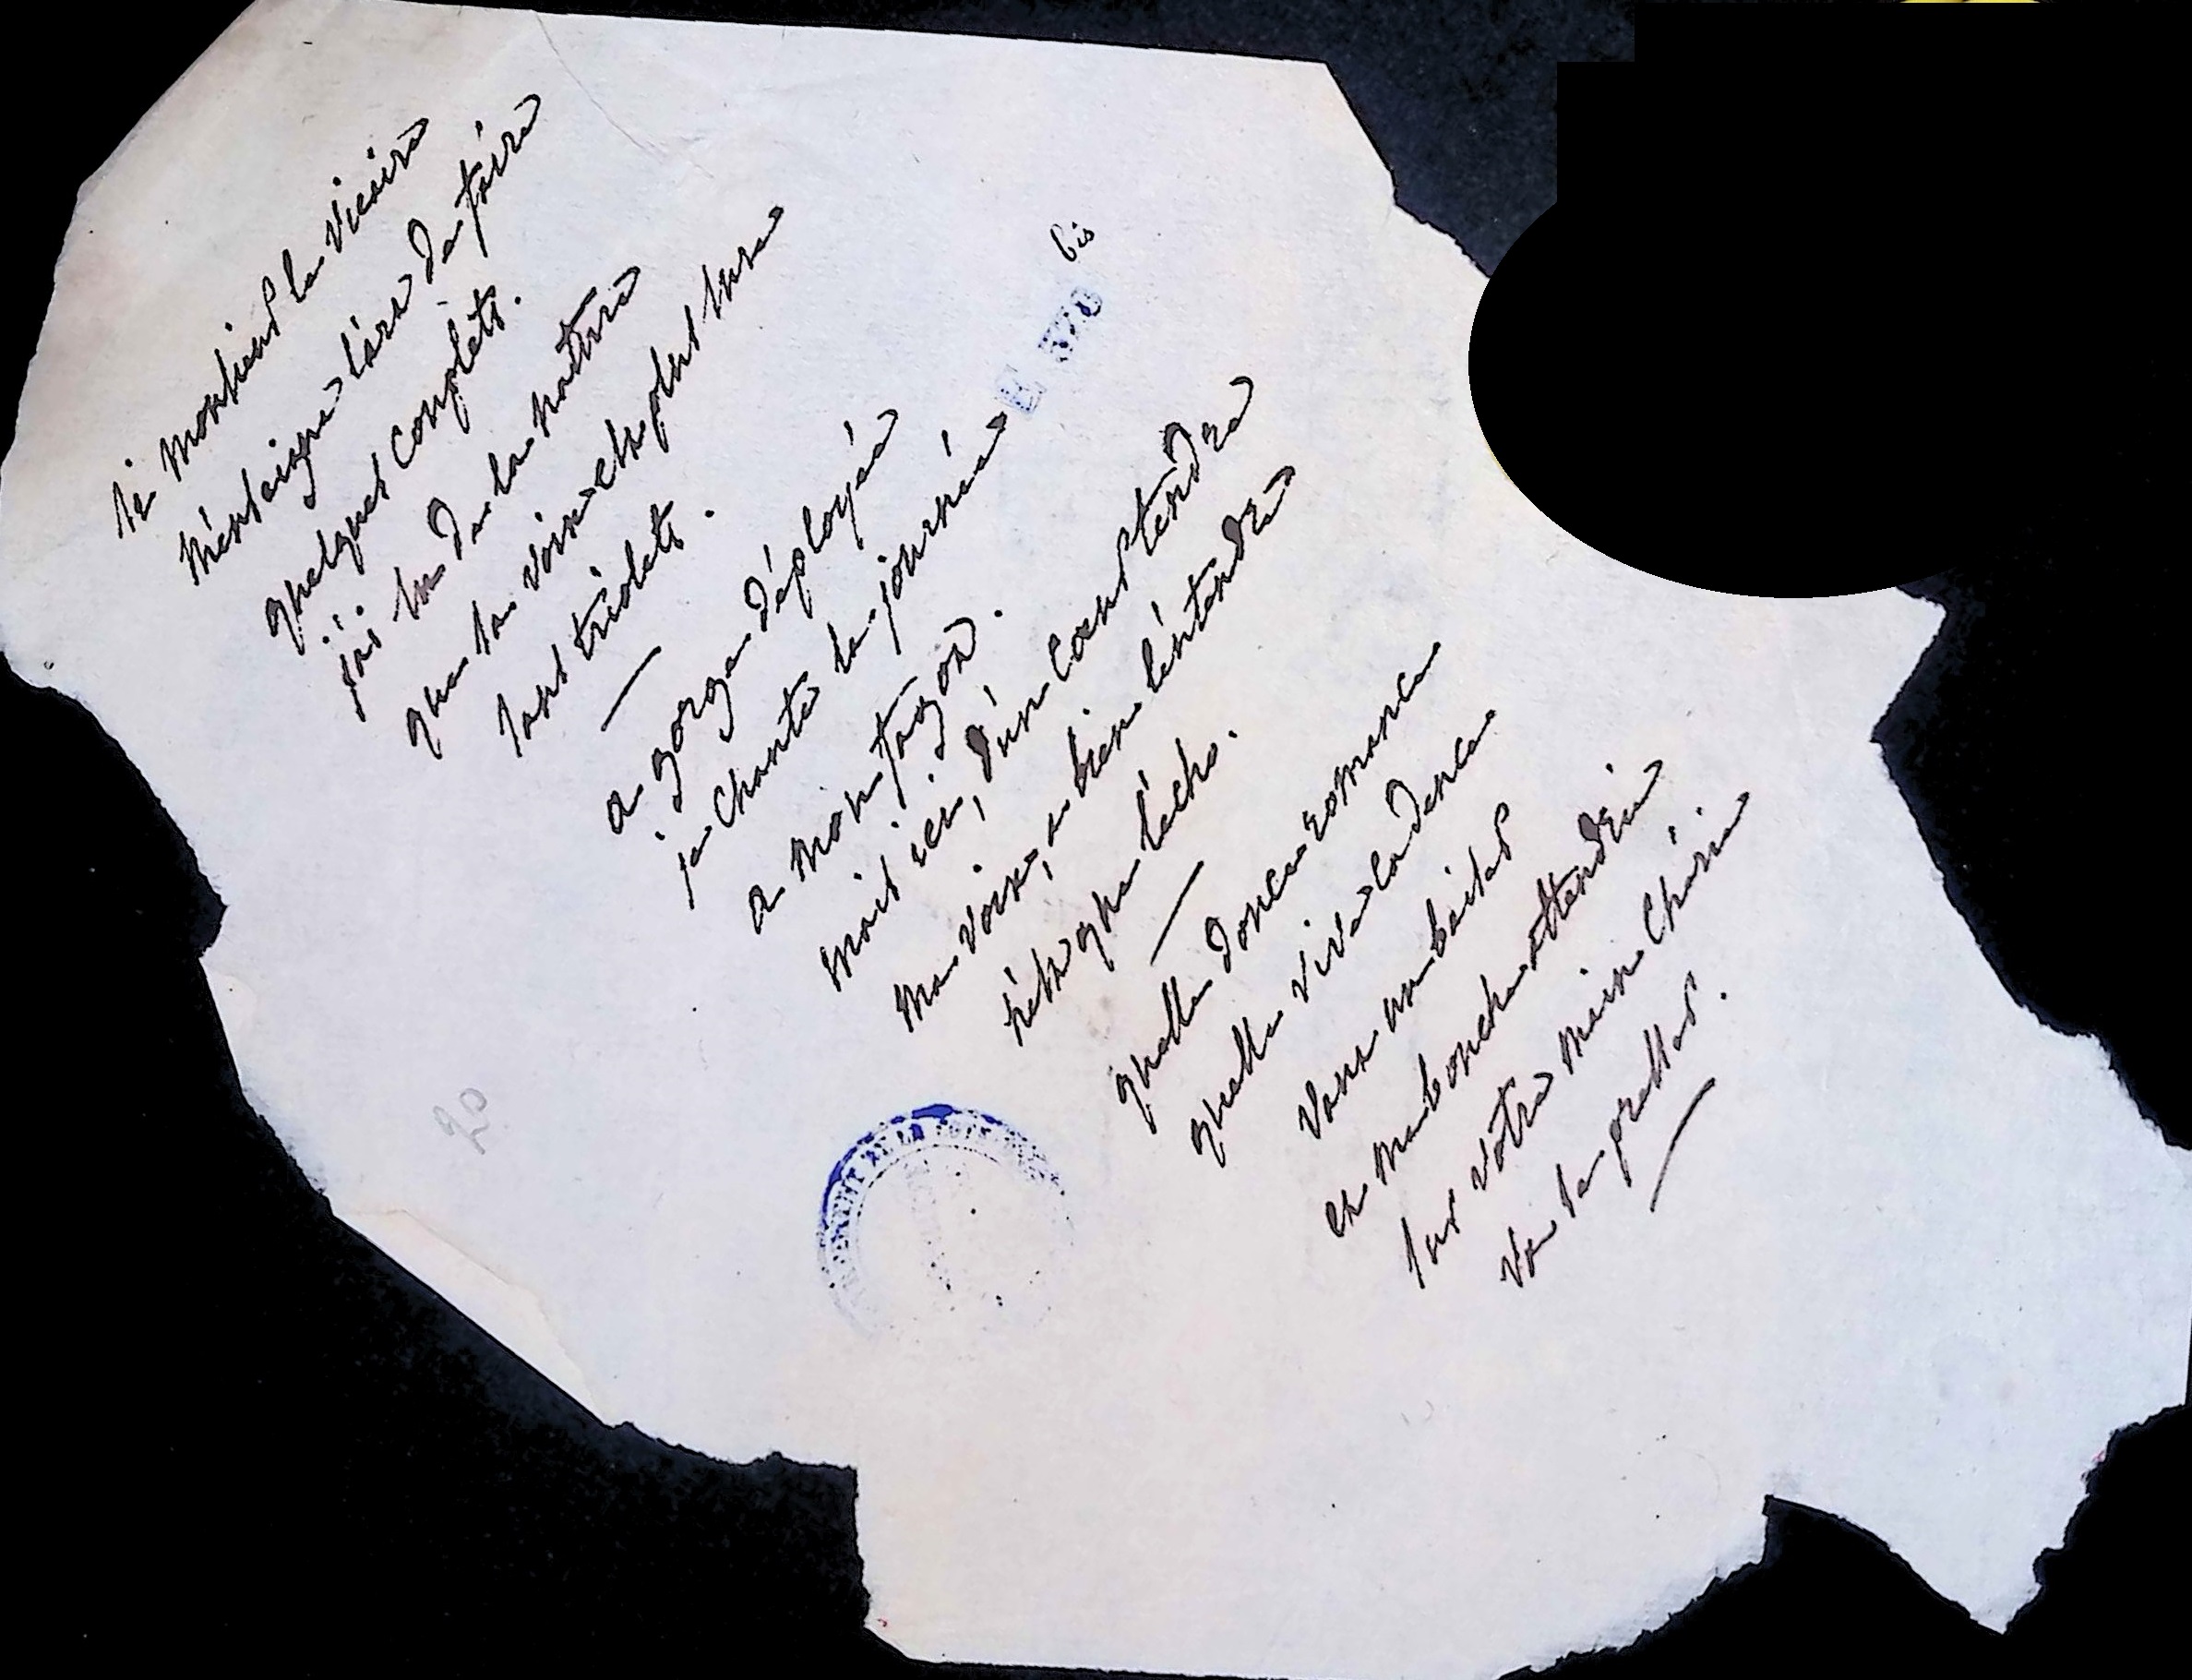 si monsieur le vicaire
m'enseigne l'art de faire
quelques couplets.
j'ai su de la nature
que la voix est plus sure
sans triolets.
a gorge déployée
je chante la journée
a mon fagot.
mais ici, d'un coeur tendre
ma voix, a bien l'entendre
n'est que l'écho.
quelle douce romance
quelle vive cadence
vaut un baiser
et ma bouche attendrie
sur votre main chérie
va se presser.
bis
E 378
20